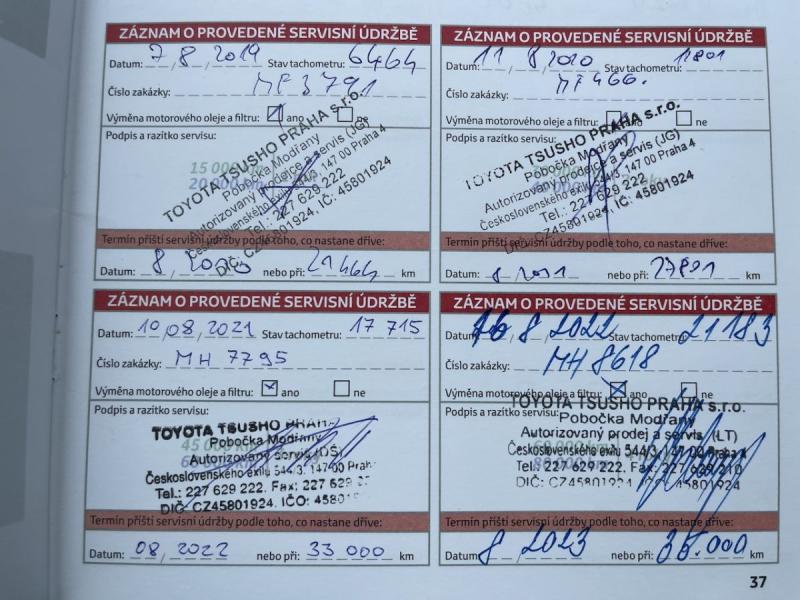 ZÁZNAM O PROVEDENÉ SERVISNÍ ÚDRŽBĚ
Datum: 7 / 8 / 2019 Stav tachometru: 6464
Číslo zakázky: MF3791
Výměna motorového oleje a filtru: ano ne
Podpis a razítko servisu:
15 000 km
20 000 km
TOYOTA TSUSHO PRAHA s.r.o.
Pobočka Modřany
Autorizovaný prodejce a servis (JG)
Československého exilu 544/3, 147 00 Praha 4
Tel.: 227 629 222
DIČ: CZ45801924, IČ: 45801924
Termín příští servisní údržby podle toho, co nastane dříve:
Datum: 8 / 2020 nebo při: 21464 km
ZÁZNAM O PROVEDENÉ SERVISNÍ ÚDRŽBĚ
Datum: 11 8 2020 Stav tachometru:
Číslo zakázky:
Výměna motorového oleje a filtru: ano ne
Podpis a razítko servisu:
TOYOTA TSUSHO PRAHA s.r.o.
Pobočka Modřany
Autorizovaný prodejce a servis (JG)
Československého exilu 544/3, 147 00 Praha 4
Tel.: 227 629 222
DIČ: CZ45801924, IČ: 45801924
Termín příští servisní údržby podle toho, co nastane dříve:
Datum: 8 / 2021 nebo při: km
ZÁZNAM O PROVEDENÉ SERVISNÍ ÚDRŽBĚ
Datum: 10 / 08 / 2021 Stav tachometru: 17 715
Číslo zakázky: MH 7795
Výměna motorového oleje a filtru: ano ne
Podpis a razítko servisu:
45 000
TOYOTA TSUSHO PRAHA
Pobočka Modřany
Autorizovaný servis (DS)
Československého exilu 544/3, 147 00 Praha
Tel.: 227 629 222. Fax: 227 629
DIČ: CZ45801924. IČO: 45801
Termín příští servisní údržby podle toho, co nastane dříve:
Datum: 08 / 2022 nebo při: 33 000 km
ZÁZNAM O PROVEDENÉ SERVISNÍ ÚDRŽBĚ
Datum: 8 2022 Stav tachometru: 21183
Číslo zakázky: MH 8618
Výměna motorového oleje a filtru: ano ne
Podpis a razítko servisu:
TOYOTA TSUSHO PRAHA s.r.o.
Pobočka Modřany
Autorizovaný prodej a servis (LT)
Československého exilu 544/3, 147 00 Praha 4
Tel.: 227 629 222. Fax: 227 629 210
DIČ: CZ45801924
Termín příští servisní údržby podle toho, co nastane dříve:
Datum: 8 2023 nebo při: km
37